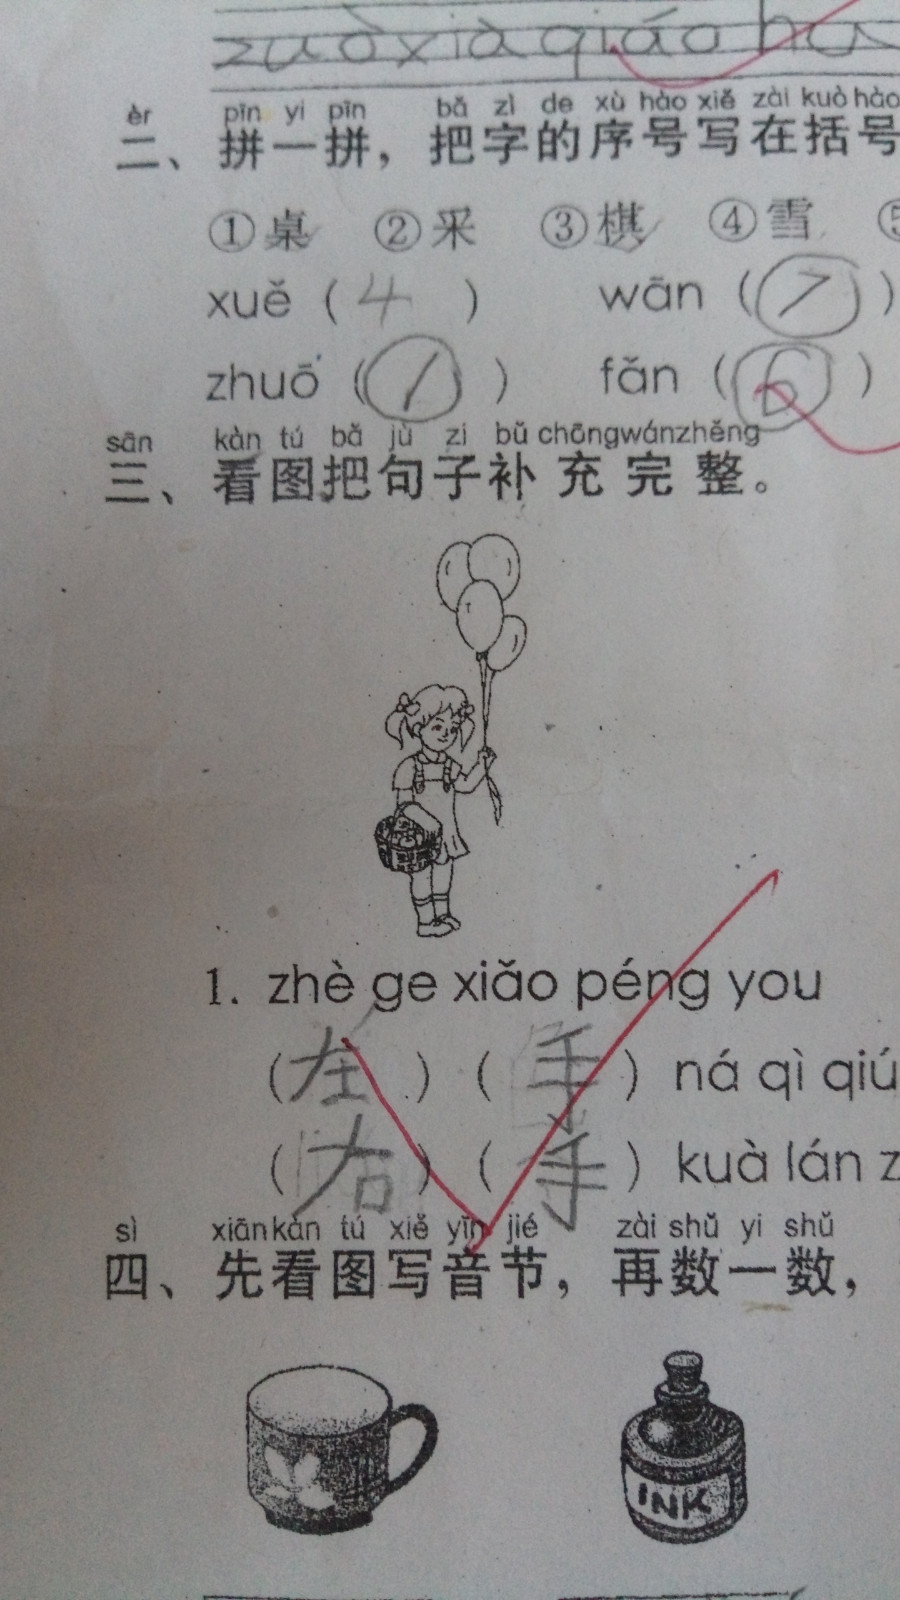 zuò xià qiáo
èr pīn yi pīn bǎ zì de xù hào xiě zài kuò hào
二、拼一拼，把字的序号写在括号
①桌 ②采 ③棋 ④雪 ⑤
xuě（4） wān（⑦）
zhuō（①） fǎn（⑥）
sān kàn tú bǎ jù zi bǔ chōng wán zhěng
三、看图把句子补充完整。
1. zhè ge xiǎo péng you
（左）（手）ná qì qiú
（右）（手）kuà lán z
sì xiān kàn tú xiě yīn jié zài shǔ yi shǔ
四、先看图写音节，再数一数，
INK